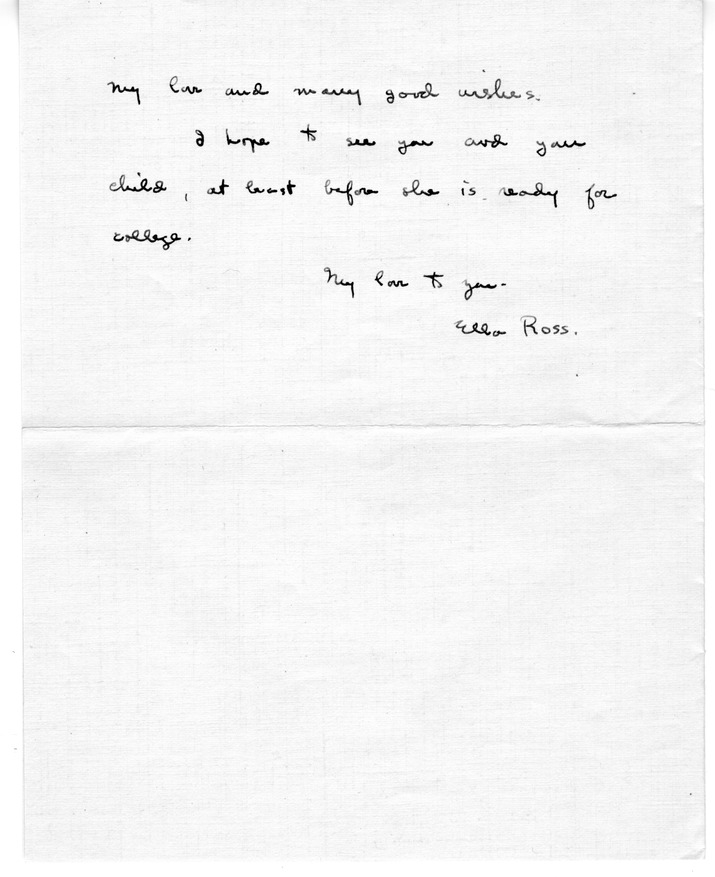 My love and many good wishes.
I hope to see you and your
child, at least before she is ready for
college.
My love to you-
Ella Ross.